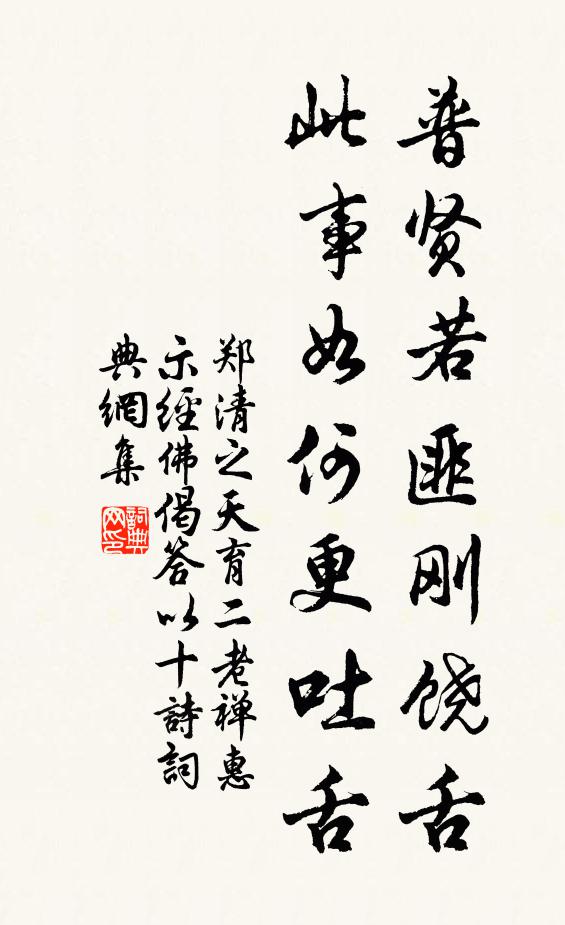 普贤若匪刚饶舌
此事如何更吐舌
郑清之天育二老禅惠
示经佛偈答以十詩詞
典網集
詞典网印